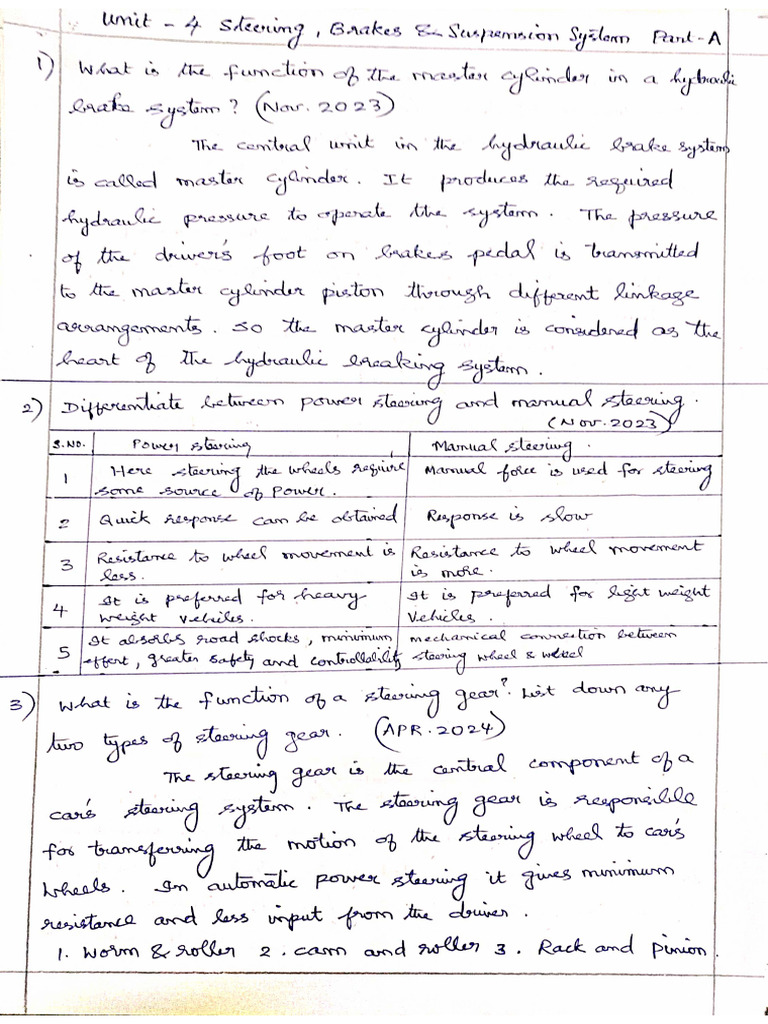 Unit - 4 Steering, Brakes & Suspension System Part-A
1) What is the function of the master cylinder in a hydraulic
brake system? (Nov. 2023)
The central unit in the hydraulic brake system
is called master cylinder. It produces the required
hydraulic pressure to operate the system. The pressure
of the driver's foot on brakes pedal is transmitted
to the master cylinder piston through different linkage
arrangements. So the master cylinder is considered as the
heart of the hydraulic breaking system.
2) Differentiate between power steering and manual steering.
(Nov.2023)
S.NO. Power steering Manual steering.
1 Here steering the wheels require Manual force is used for steering
some source of Power.
2 Quick response can be obtained Response is slow
3 Resistance to wheel movement is Resistance to wheel movement
less. is more.
4 It is preferred for heavy It is preferred for light weight
weight vehicles. vehicles.
5 It absorbs road shocks, minimum mechanical connection between
effort, greater safety and controllability steering wheel & wheel
3) What is the function of a steering gear? List down any
two types of steering gear. (APR.2024)
The steering gear is the central component of a
car's steering system. The steering gear is responsible
for transferring the motion of the steering wheel to car's
wheels. In automatic power steering it gives minimum
resistance and less input from the driver.
1. Worm & roller 2. cam and roller 3. Rack and pinion.